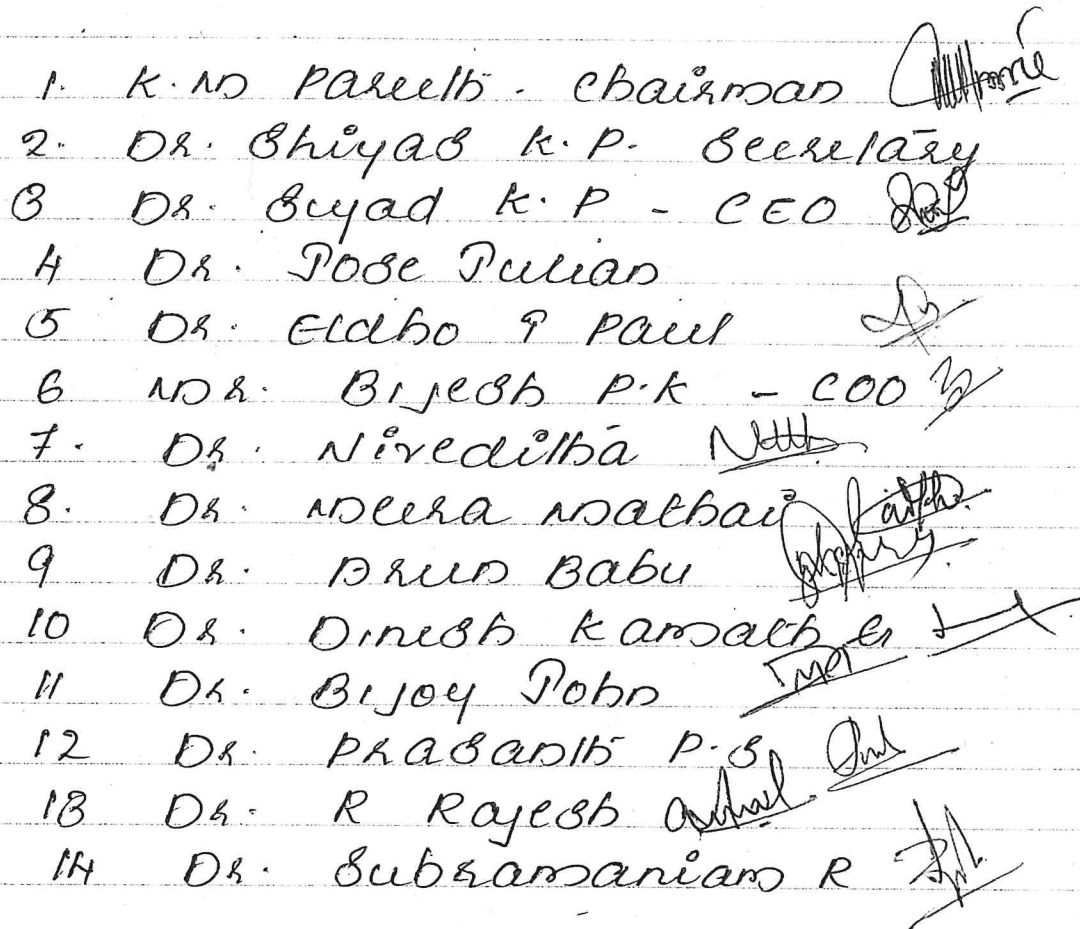 1. K.M Pareeth - Chairman
2. Dr. Shiyas K.P. Secretary
3 Dr. Siyad K.P - CEO
4 Dr. Jose Julian
5 Dr. Eldho T Paul
6 Mr. Bijesh P.K - COO
7. Dr. Niveditha
8. Dr. Meera Mathai
9 Dr. Arun Babu
10 Dr. Dinesh Kamath G
11 Dr. Bijoy John
12 Dr. Prasanth P.S
13 Dr. R Rajesh
14 Dr. Subramaniam R